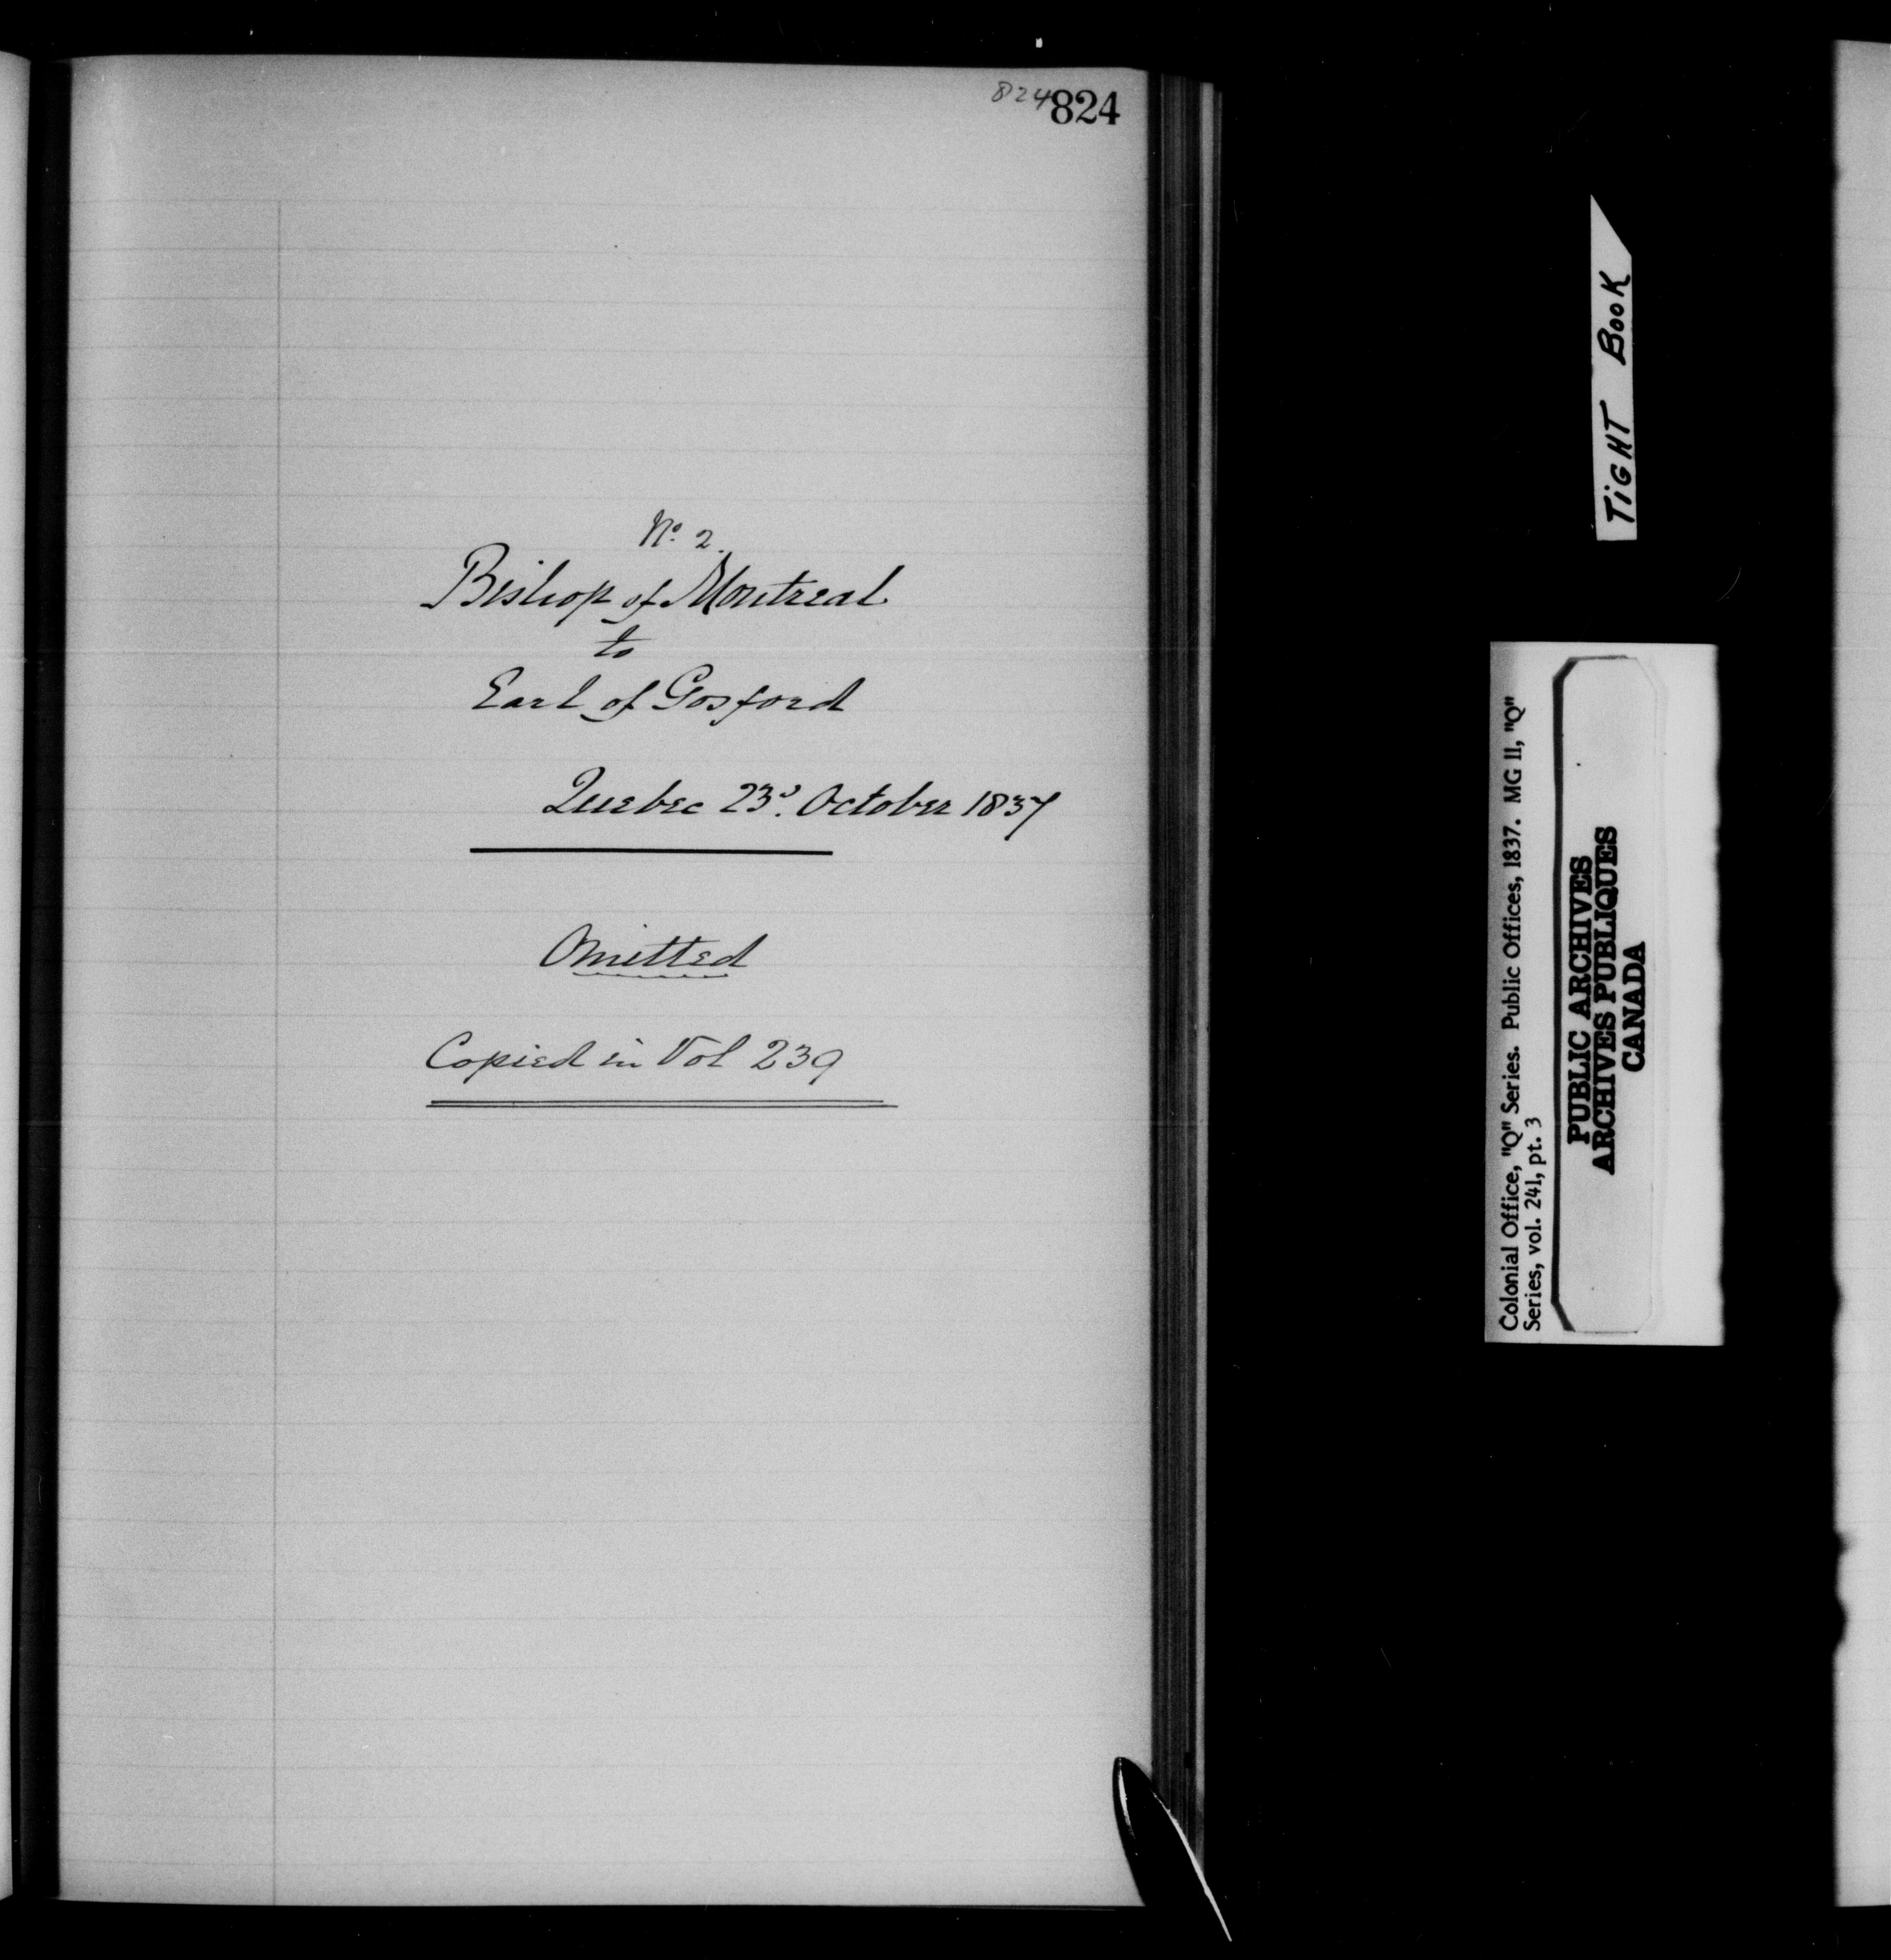 824 824
No. 2.
Bishop of Montreal
to
Earl of Gosford
Quebec 23d. October 1837
Omitted
Copied in Vol 239
TIGHT BOOK
Colonial Office, "Q" Series. Public Offices, 1837. MG 11, "Q"
Series, vol. 241, pt. 3
PUBLIC ARCHIVES
ARCHIVES PUBLIQUES
CANADA